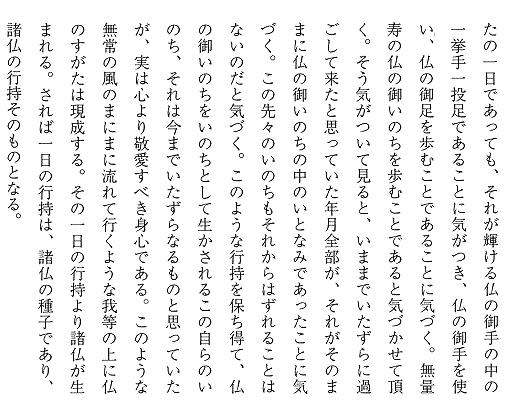 たの一日であっても、それが輝ける仏の御手の中の
一挙手一投足であることに気がつき、仏の御手を使
い、仏の御足を歩むことであることに気づく。無量
寿の仏の御いのちを歩むことであると気づかせて頂
く。そう気がついて見ると、いままでいたずらに過
ごして来たと思っていた年月全部が、それがそのま
まに仏の御いのちの中のいとなみであったことに気
づく。この先々のいのちもそれからはずれることは
ないのだと気づく。このような行持を保ち得て、仏
の御いのちをいのちとして生かされるこの自らのい
のち、それは今までいたずらなるものと思っていた
が、実は心より敬愛すべき身心である。このような
無常の風のまにまに流れて行くような我等の上に仏
のすがたは現成する。その一日の行持より諸仏が生
まれる。されば一日の行持は、諸仏の種子であり、
諸仏の行持そのものとなる。